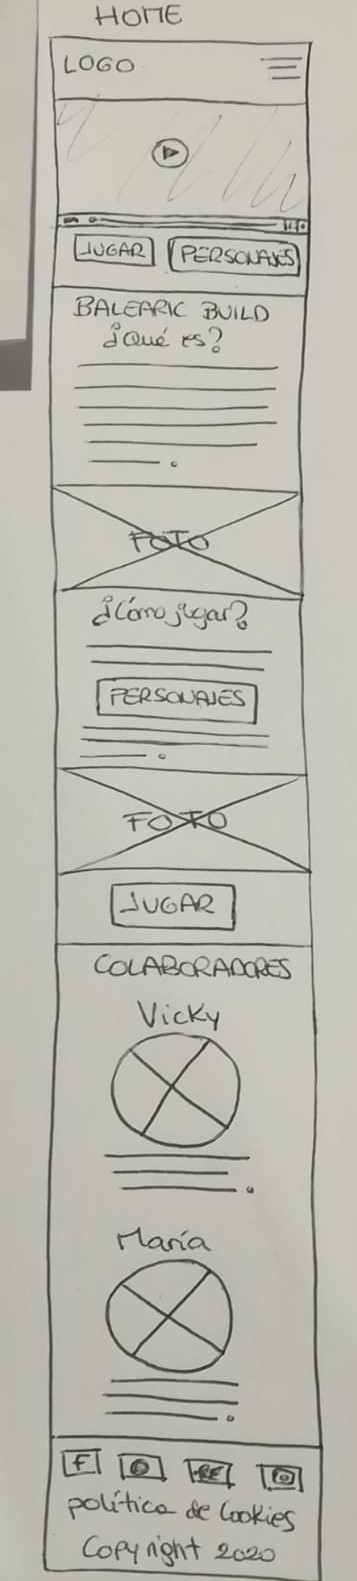 HOME
LOGO
JUGAR PERSONAJES
BALEARIC BUILD
¿Qué es?
FOTO
¿Cómo jugar?
PERSONAJES
FOTO
JUGAR
COLABORADORES
Vicky
María
f
política de Cookies
Copyright 2020